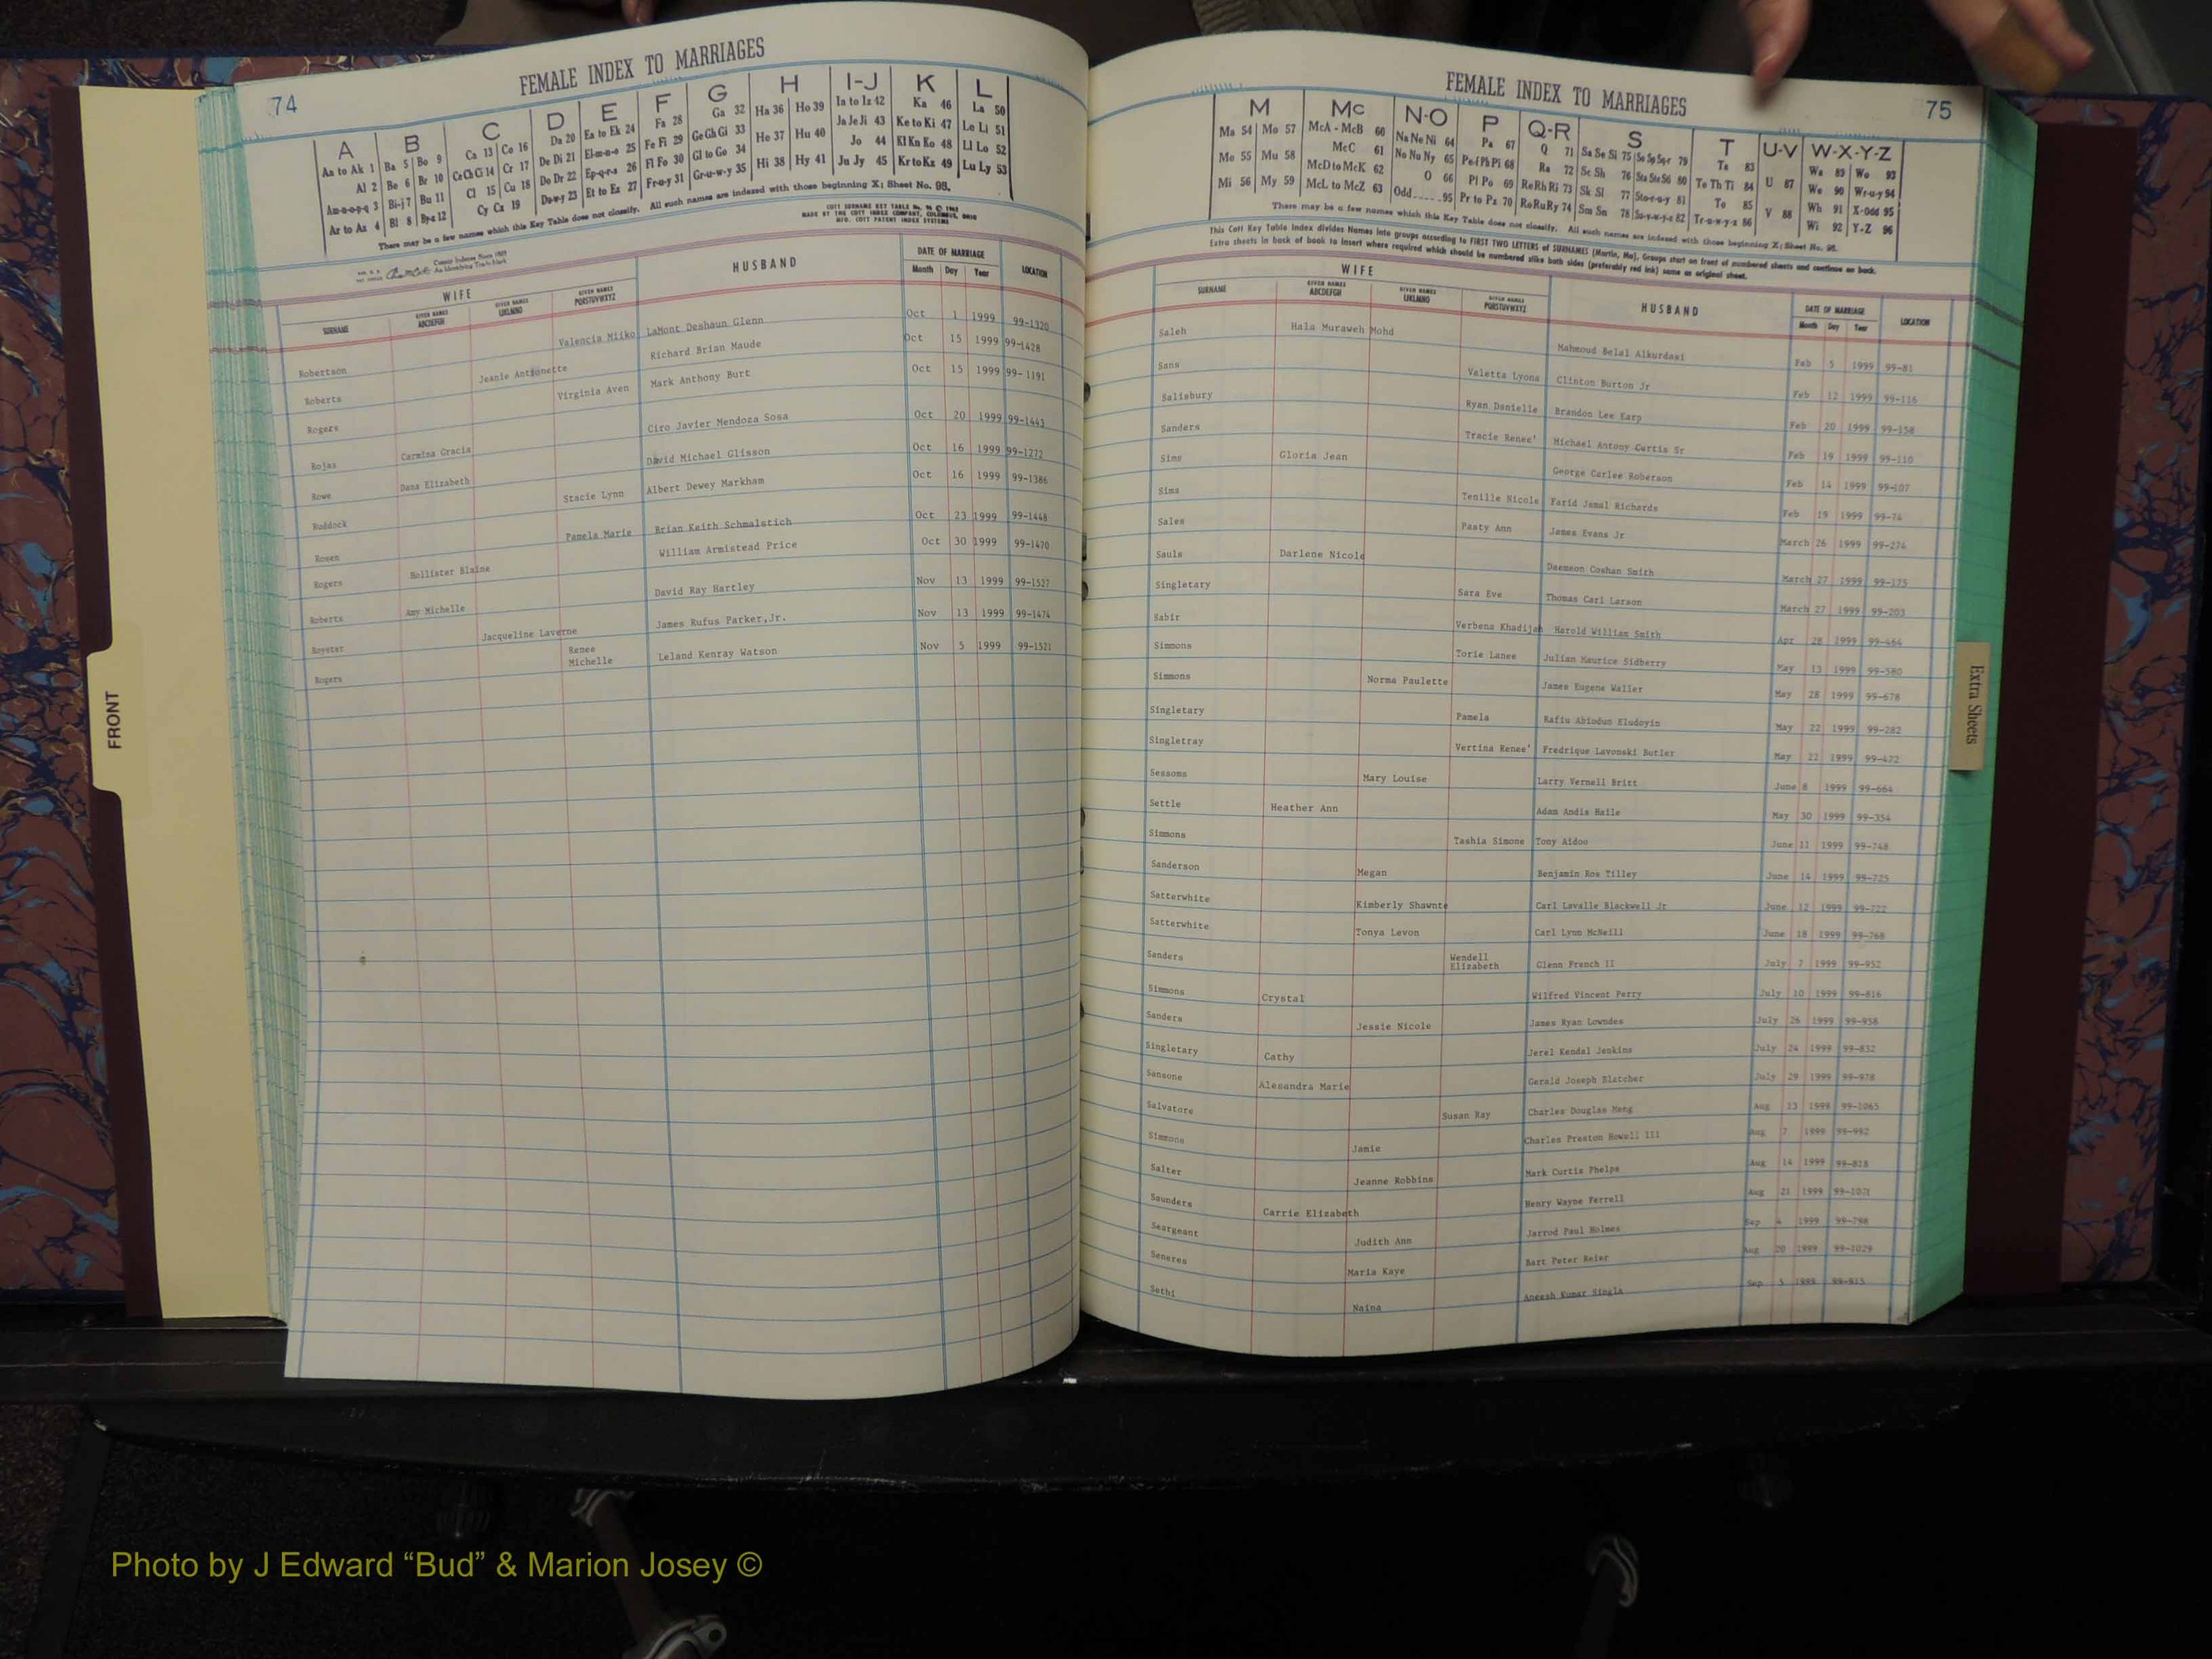 74
FEMALE INDEX TO MARRIAGES
A B C D E F G H I-J K L
Aa to Ak 1 Ba 5 Bo 9 Ca 13 Co 16 Da 20 Ea to Ek 24 Fa 28 Ga 32 Ha 36 Ho 39 Ia to Iz 42 Ka 46 La 50
Al 2 Be 6 Br 10 Ce Ch Ci 14 Cr 17 De Di 21 El-m-n-o 25 Fe Fi 29 Ge Gh Gi 33 He 37 Hu 40 Ja Je Ji 43 Ke to Ki 47 Le Li 51
Am-n-o-p-q 3 Bi-j 7 Bu 11 Cl 15 Cu 18 Do Dr 22 Ep-q-r-s 26 Fl Fo 30 Gl to Go 34 Hi 38 Hy 41 Jo 44 Kl Kn Ko 48 Ll Lo 52
Ar to Az 4 Bl 8 By-z 12 Cy Cz 19 Du-w-y 23 Et to Ez 27 Fr-u-y 31 Gr-u-w-y 35 Ju Jy 45 Kr to Kz 49 Lu Ly 53
There may be a few names which this Key Table does not classify. All such names are indexed with those beginning X; Sheet No. 95.
MADE BY THE COTT INDEX COMPANY, COLUMBUS, OHIO
MFG. COTT PATENT INDEX SYSTEMS
County Indexes Since 1888
An Identifying Trade Mark
WIFE HUSBAND DATE OF MARRIAGE LOCATION
SURNAME GIVEN NAMES ABCDEFGH GIVEN NAMES IJKLMNO GIVEN NAMES PQRSTUVWXYZ Month Day Year
Robertson Valencia Miiko LaMont Deshaun Glenn Oct 1 1999 99-1320
Roberts Jeanie Antionette Richard Brian Maude Oct 15 1999 99-1428
Rogers Virginia Aven Mark Anthony Burt Oct 15 1999 99-1191
Rojas Carmina Gracia Ciro Javier Mendoza Sosa Oct 20 1999 99-1443
Rowe Dana Elizabeth David Michael Glisson Oct 16 1999 99-1272
Ruddock Stacie Lynn Albert Dewey Markham Oct 16 1999 99-1386
Rosen Pamela Marie Brian Keith Schmalstich Oct 23 1999 99-1448
Rogers Hollister Blaine William Armistead Price Oct 30 1999 99-1470
Roberts Amy Michelle David Ray Hartley Nov 13 1999 99-1527
Royster Jacqueline Laverne James Rufus Parker,Jr. Nov 13 1999 99-1474
Rogers Renee Michelle Leland Kenray Watson Nov 5 1999 99-1521
FRONT
FEMALE INDEX TO MARRIAGES
75
M Mc N-O P Q-R S T U-V W-X-Y-Z
Ma 54 Mo 57 McA - McB 60 Na Ne Ni 64 Pa 67 Q 71 Sa Se Si 75 So Sp Sq-r 79 Ta 83 Wa 89 Wo 93
Me 55 Mu 58 McC 61 No Nu Ny 65 Pe-f Ph Pi 68 Ra 72 Sc Sh 76 Sta Ste Sti 80 Te Th Ti 84 U 87 We 90 Wr-u-y 94
Mi 56 My 59 McD to McK 62 O 66 Pl Po 69 Re Rh Ri 73 Sk Sl 77 Sto-r-u-y 81 To 85 V 88 Wh 91 X-Odd 95
McL to McZ 63 Odd 95 Pr to Pz 70 Ro Ru Ry 74 Sm Sn 78 Su-v-w-y-z 82 Tr-u-w-y-z 86 Wi 92 Y-Z 96
There may be a few names which this Key Table does not classify. All such names are indexed with those beginning X; Sheet No. 95.
This Cott Key Table Index divides Names into groups according to FIRST TWO LETTERS of SURNAMES (Martin, Ma). Groups start on front of numbered sheets and continue on back.
Extra sheets in back of book to insert where required which should be numbered alike both sides (preferably red ink) same as original sheet.
WIFE HUSBAND DATE OF MARRIAGE LOCATION
SURNAME GIVEN NAMES ABCDEFGH GIVEN NAMES IJKLMNO GIVEN NAMES PQRSTUVWXYZ Month Day Year
Saleh Hala Muraweh Mohd Mahmoud Belal Alkurdasi Feb 5 1999 99-81
Sans Valetta Lyons Clinton Burton Jr Feb 12 1999 99-116
Salisbury Ryan Danielle Brandon Lee Earp Feb 20 1999 99-158
Sanders Tracie Renee' Michael Antony Curtis Sr Feb 19 1999 99-110
Sims Gloria Jean George Carlee Roberson Feb 14 1999 99-107
Sims Tenille Nicole Farid Jamal Richards Feb 19 1999 99-74
Sales Pasty Ann James Evans Jr March 26 1999 99-274
Sauls Darlene Nicole Daemeon Coshan Smith March 27 1999 99-175
Singletary Sara Eve Thomas Carl Larson March 27 1999 99-203
Sabir Verbena Khadijah Harold William Smith Apr 28 1999 99-464
Simmons Torie Lanee Julian Maurice Sidberry May 13 1999 99-580
Simmons Norma Paulette James Eugene Waller May 28 1999 99-678
Singletary Pamela Rafiu Abiodun Eludoyin May 22 1999 99-282
Singletray Vertina Renee' Fredrique Lavonski Butler May 22 1999 99-472
Sessoms Mary Louise Larry Vernell Britt June 8 1999 99-664
Settle Heather Ann Adam Andis Haile May 30 1999 99-354
Simmons Tashia Simone Tony Aidoo June 11 1999 99-748
Sanderson Megan Benjamin Ros Tilley June 14 1999 99-725
Satterwhite Kimberly Shawnte Carl Lavalle Blackwell Jr June 12 1999 99-722
Satterwhite Tonya Levon Carl Lynn McNeill June 18 1999 99-768
Sanders Wendell Elizabeth Glenn French II July 7 1999 99-952
Simmons Crystal Wilfred Vincent Perry July 10 1999 99-816
Sanders Jessie Nicole James Ryan Lowndes July 26 1999 99-958
Singletary Cathy Jerel Kendal Jenkins July 24 1999 99-832
Sansone Alesandra Marie Gerald Joseph Blatcher July 29 1999 99-978
Salvatore Susan Ray Charles Douglas Meng Aug 13 1999 99-1065
Simmons Jamie Charles Preston Howell III Aug 7 1999 99-992
Salter Jeanne Robbins Mark Curtis Phelps Aug 14 1999 99-818
Saunders Carrie Elizabeth Henry Wayne Ferrell Aug 21 1999
Seargeant Judith Ann Jarrod Paul Holmes Sep 4 1999 99-798
Seneres Maria Kaye Bart Peter Reier Aug 20 1999 99-1029
Sethi Naina Aneesh Kumar Singla Sep 5 1999 99-915
Extra Sheets
Photo by J Edward “Bud” & Marion Josey ©